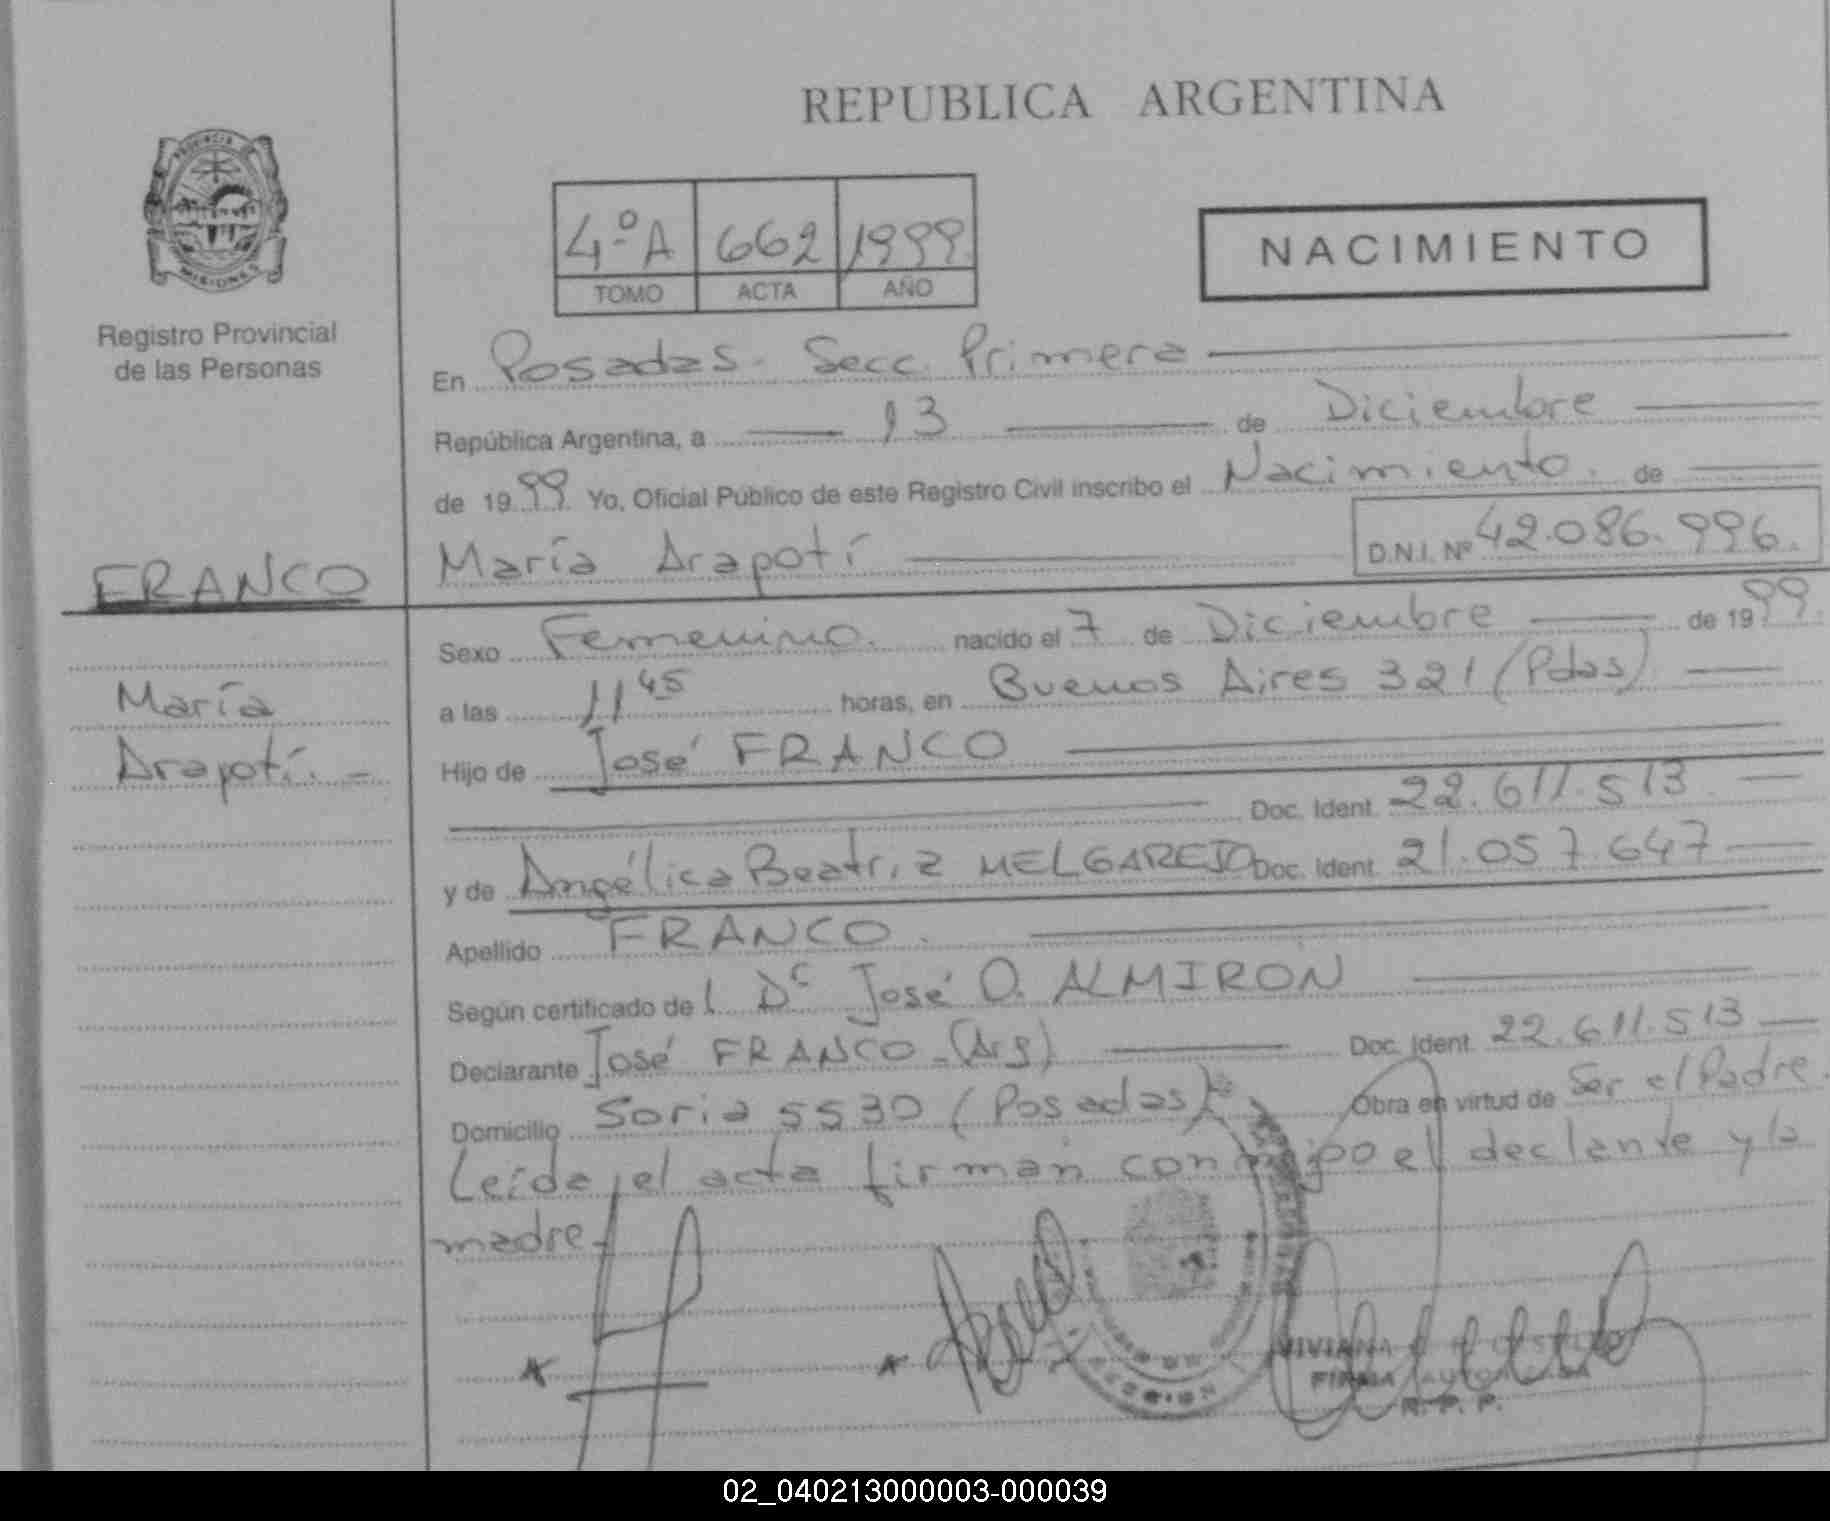 REPUBLICA ARGENTINA
PROVINCIA DE
MISIONES
Registro Provincial
de las Personas
4.ºA 662 1999.
TOMO ACTA AÑO
NACIMIENTO
En Posadas. Secc. Primera
República Argentina, a 13 de Diciembre
de 1999. Yo, Oficial Público de este Registro Civil inscribo el Nacimiento. de
FRANCO
María Arapotí
D.N.I. Nº 42.086.996.
Sexo Femenino. nacido el 7 de Diciembre de 1999.
María
a las 11 45 horas, en Buenos Aires 321 (Pdas)
Arapotí. -
Hijo de José FRANCO
Doc. Ident. 22.611.513.
y de Angélica Beatriz MELGAREJO Doc. Ident. 21.057.647
Apellido FRANCO.
Según certificado de l Dr José O. ALMIRON
Declarante José FRANCO -(Arg) Doc. Ident. 22.611.513
Domicilio Soria 5530 (Posadas) Obra en virtud de Ser el Padre.
Leída el acta firman conmigo el declante y la
madre-
VIVIANA
FIRMA AUTORIZADA
R. P. P.
02_040213000003-000039